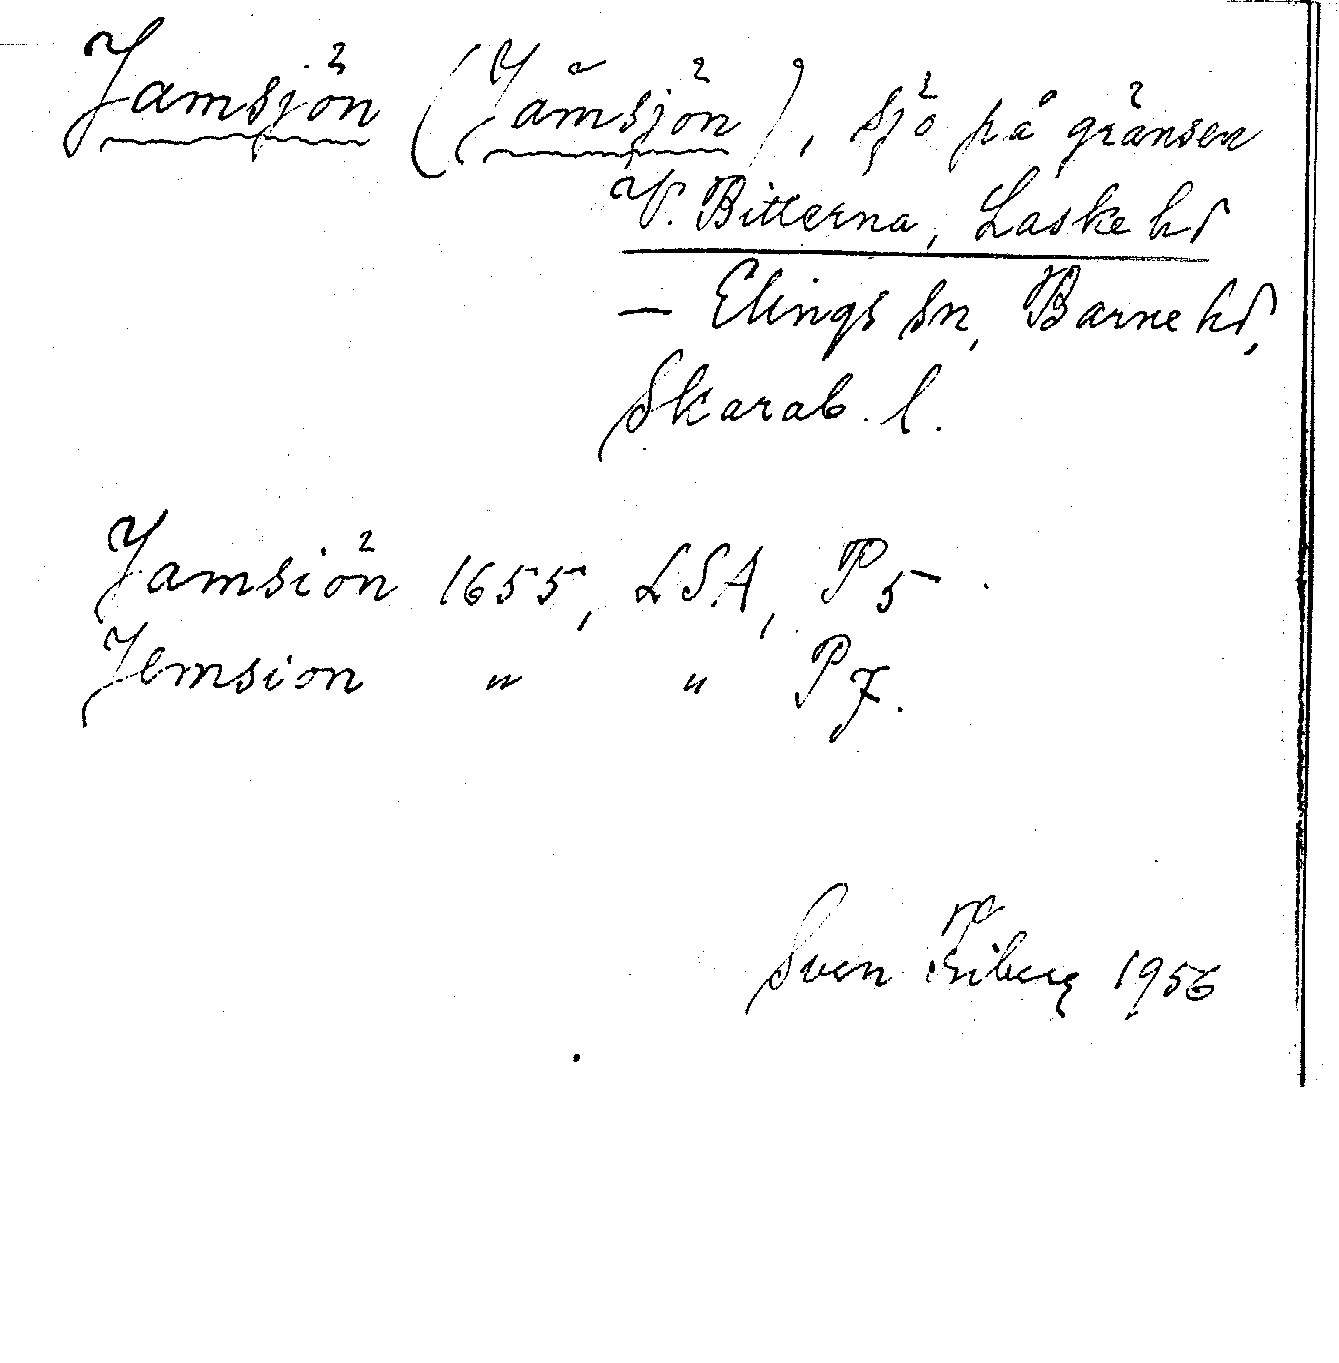 Jamsjön (Jämsjön), sjö på gränsen
V. Bitterna, Laske hd
— Elings sn, Barne hd,
Skarab. l.
Jamsiön 1655, LSA, P 5
Jemsion " " P 7.
Sven Friberg 1956